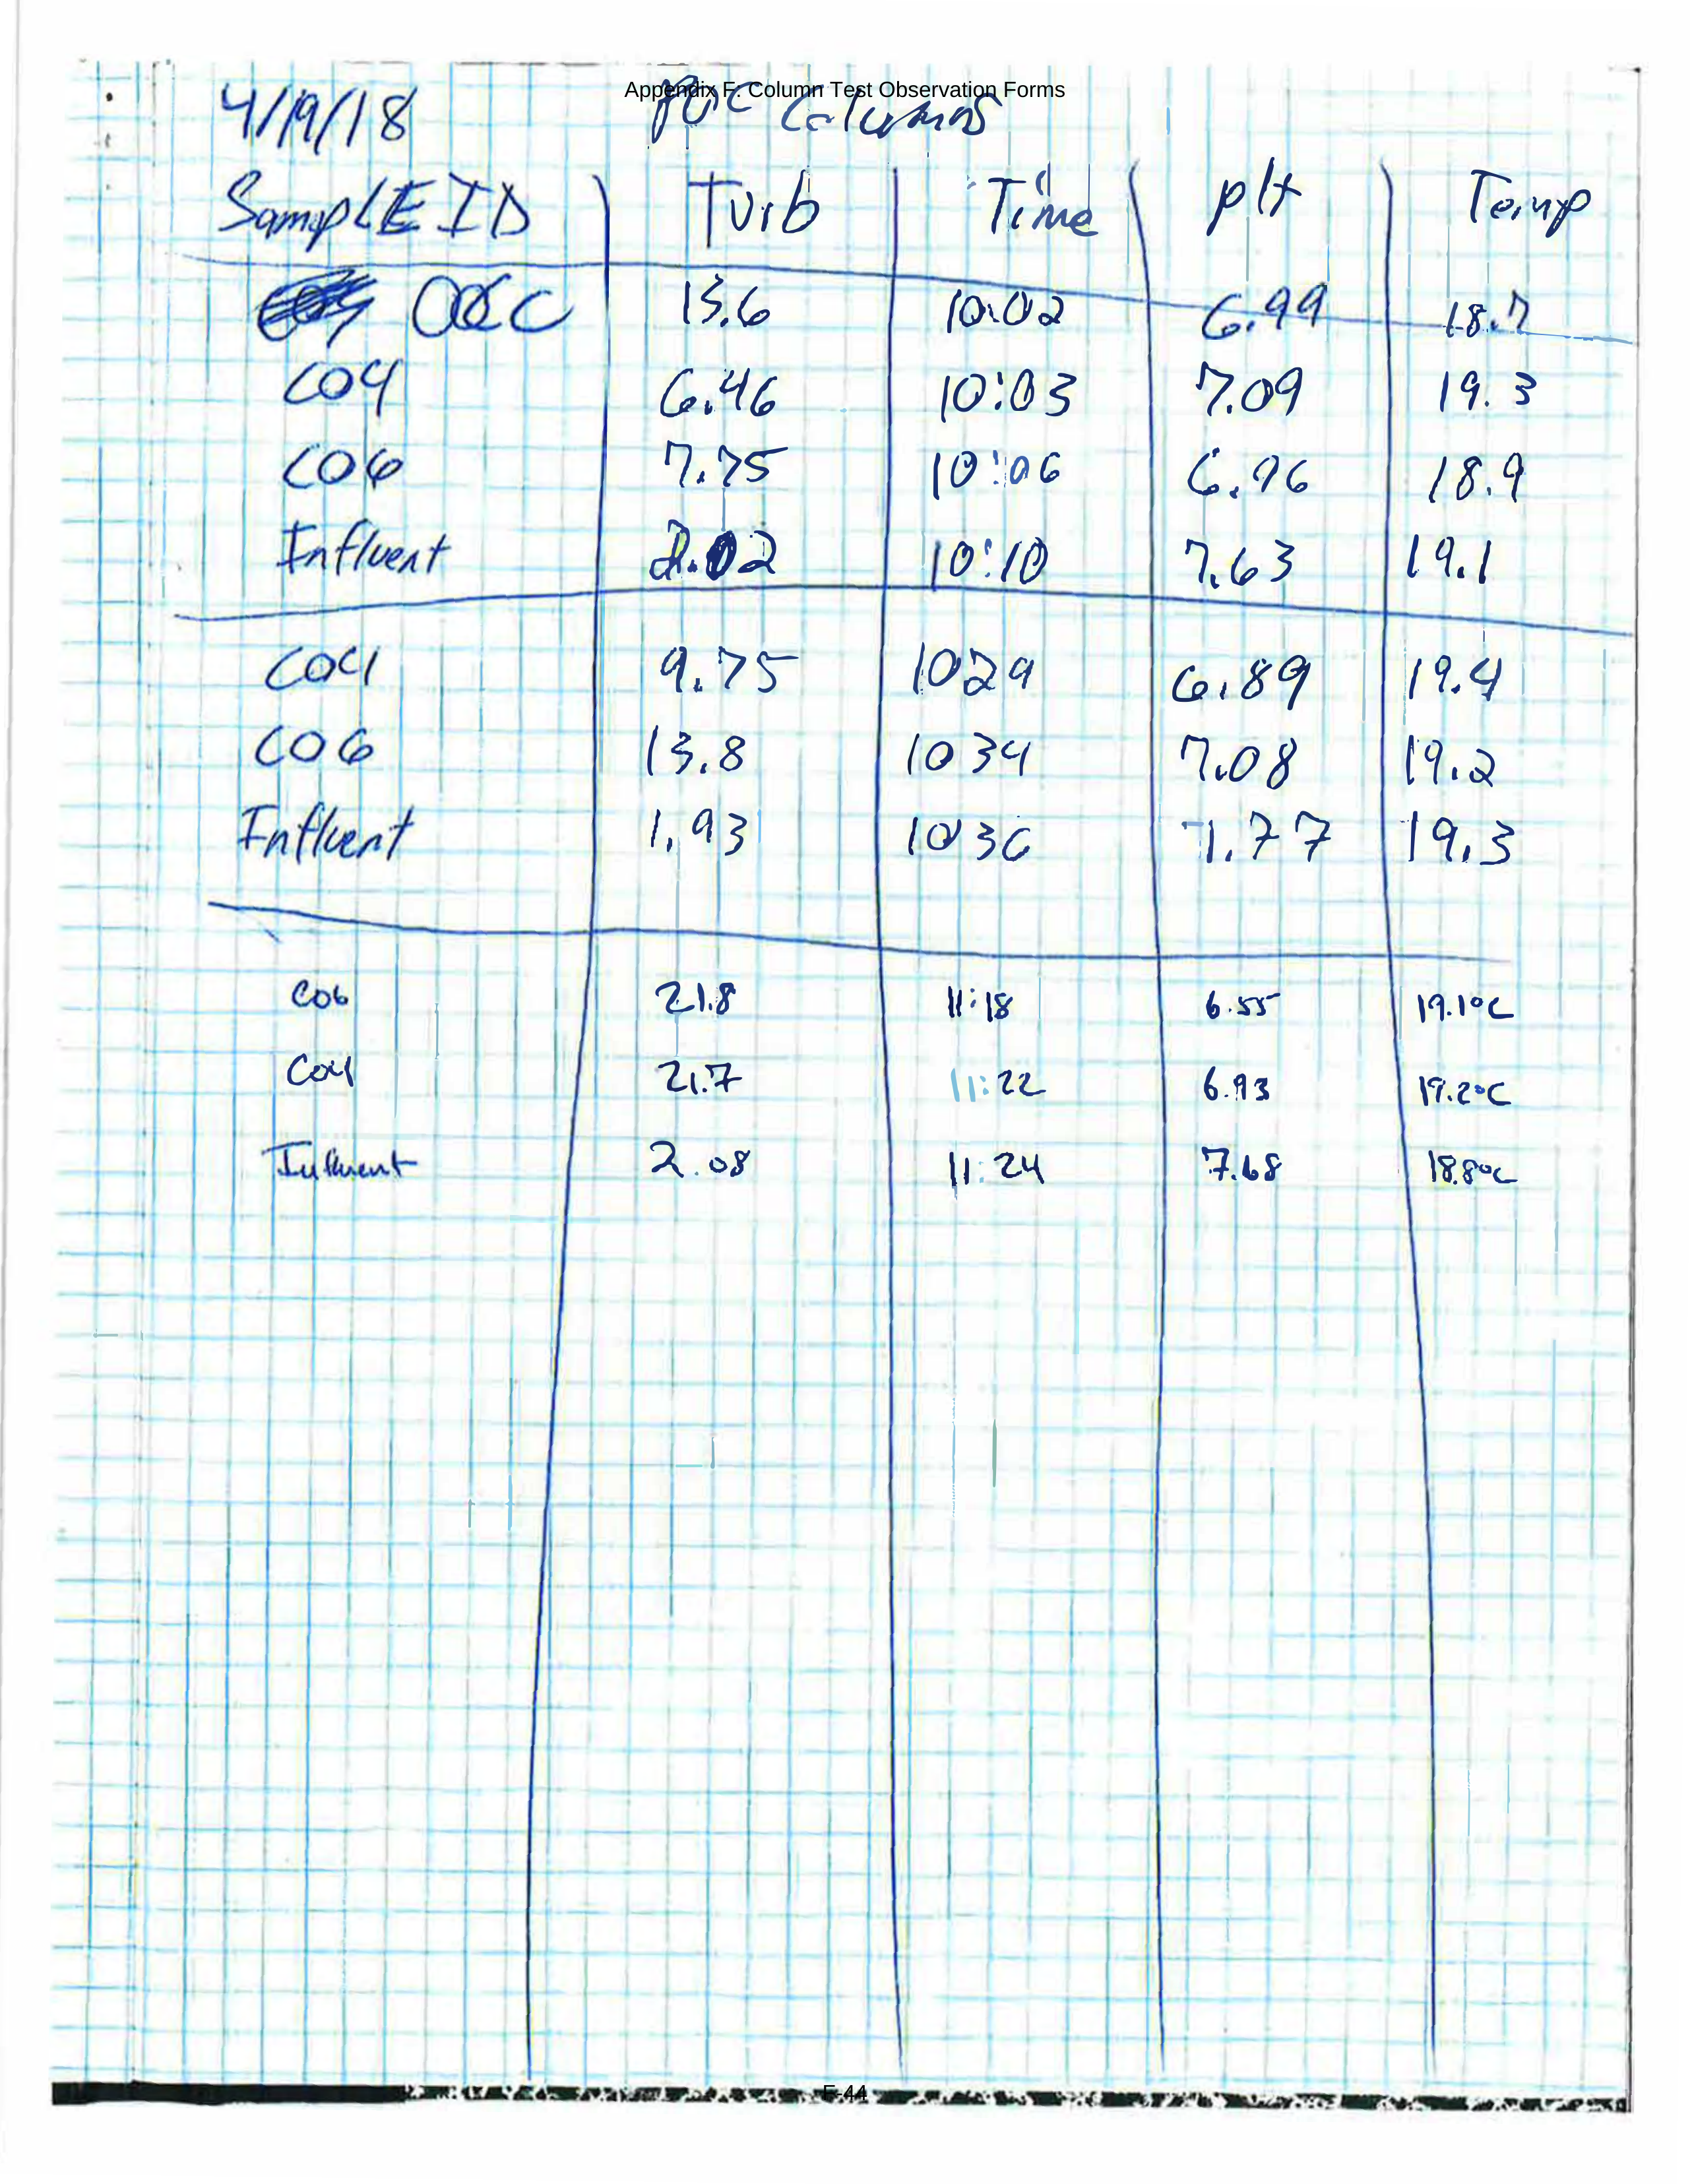 Appendix F: Column Test Observation Forms
4/19/18 Columns
SamplE ID Turb Time pH Temp
13.6 10:02 6.99 18.7
C04 6.46 10:03 7.09 19.3
C06 7.75 10:06 6.96 18.9
Influent 2.02 10:10 7.63 19.1
C04 9.75 1029 6.89 19.4
C06 13.8 1034 7.08 19.2
Influent 1.93 1036 7.77 19.3
C06 21.8 11:18 6.55 19.1°C
C04 21.7 11:22 6.93 19.2°C
Influent 2.08 11:24 7.68 18.8°C
F-44